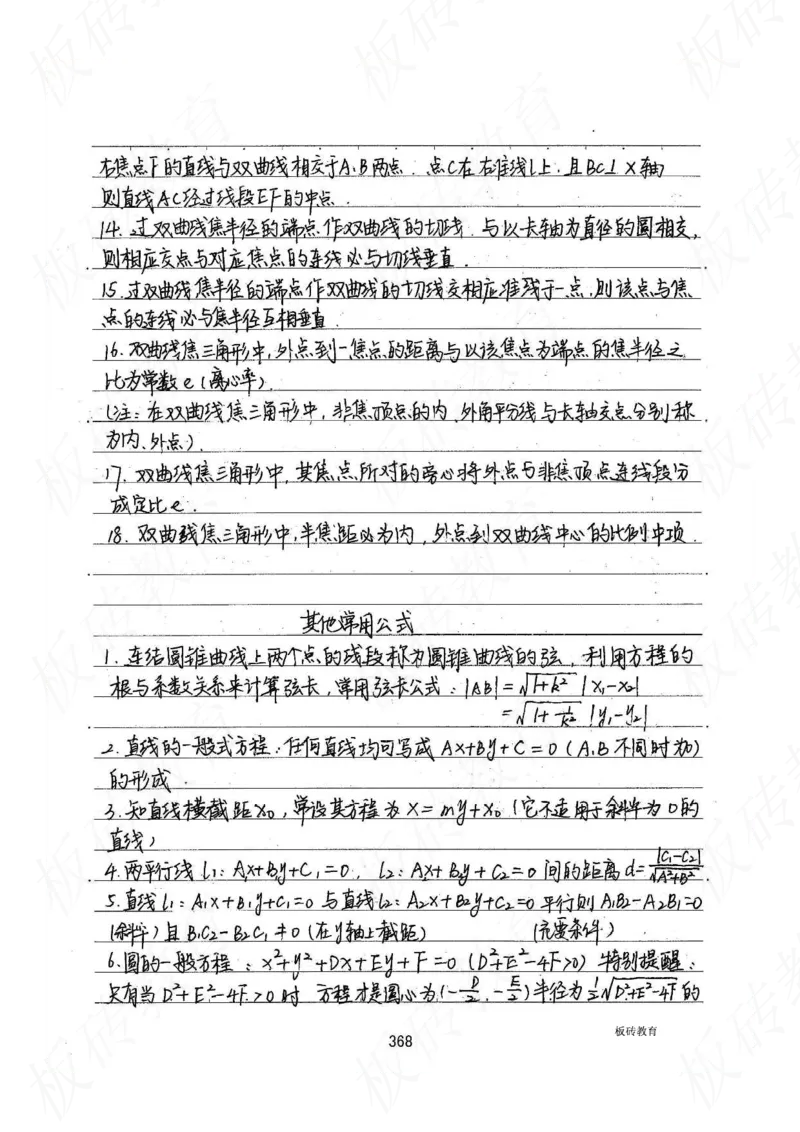 右焦点F的直线与双曲线相交于A、B两点. 点C在右准线l上.且BC⊥X轴
则直线AC经过线段EF的中点.
14. 过双曲线焦半径的端点作双曲线的切线, 与以长轴为直径的圆相交,
则相应交点与对应焦点的连线必与切线垂直.
15.过双曲线焦半径的端点作双曲线的切线交相应准线于一点,则该点与焦
点的连线必与焦半径互相垂直.
16. 双曲线焦三角形中,外点到一焦点的距离与以该焦点为端点的焦半径之
比为常数e(离心率).
(注:在双曲线焦三角形中,非焦顶点的内、外角平分线与长轴交点分别称
为内、外点)
17. 双曲线焦三角形中,其焦点所对的旁心将外点与非焦顶点连线段分
成定比e.
18. 双曲线焦三角形中,半焦距必为内、外点到双曲线中心的比例中项.
其他常用公式
1. 连结圆锥曲线上两个点的线段称为圆锥曲线的弦, 利用方程的
根与系数关系来计算弦长,常用弦长公式: |AB|=√(1+k²) |x₁-x₂|
=√(1+1/k²) |y₁-y₂|
2. 直线的一般式方程:任何直线均可写成 Ax+By+C=0 (A,B不同时为0)
的形成.
3. 知直线横截距x₀,常设其方程为x=my+x₀(它不适用于斜率为0的
直线)
4. 两平行线 l₁: Ax+By+C₁=0, l₂: Ax+By+C₂=0 间的距离d=|C₁-C₂|/√(A²+B²).
5. 直线l₁: A₁x+B₁y+C₁=0 与直线l₂: A₂x+B₂y+C₂=0 平行则A₁B₂-A₂B₁=0
(斜率)且B₁C₂-B₂C₁≠0(在y轴上截距) (充要条件)
6. 圆的一般方程: x²+y²+Dx+Ey+F=0 (D²+E²-4F>0) 特别提醒:
只有当D²+E²-4F>0时 方程才是圆心为(-D/2,-E/2)半径为½√(D²+E²-4F)的
368
板砖教育
板砖教育